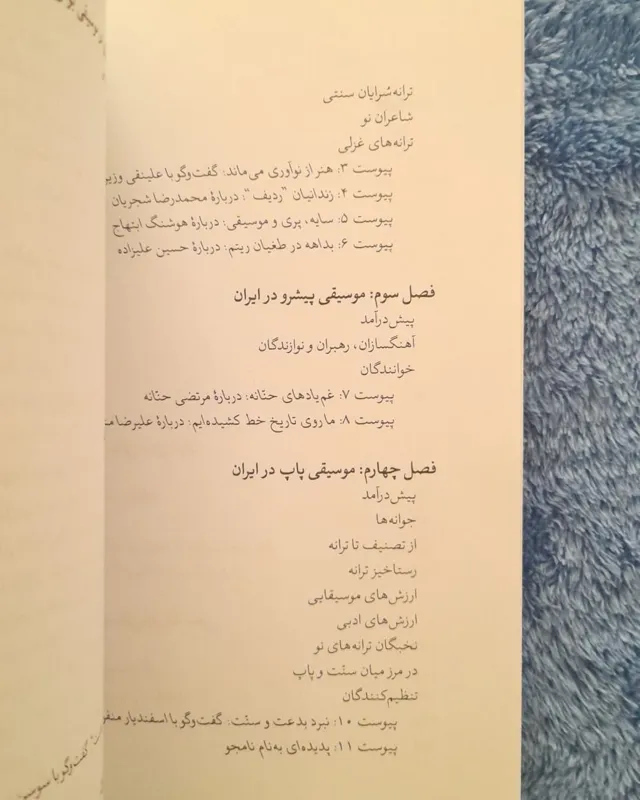 ترانه‌سُرایان سنتی
شاعران نو
ترانه‌های غزلی
پیوست ۳: هنر از نوآوری می‌ماند: گفت‌وگو با علینقی
پیوست ۴: زندانیان "ردیف": دربارهٔ محمدرضا شجریان
پیوست ۵: سایه، پری و موسیقی: دربارهٔ هوشنگ ابتهاج
پیوست ۶: بداهه در طغیان ریتم: دربارهٔ حسین علیزاده
فصل سوم: موسیقی پیشرو در ایران
پیش‌درآمد
آهنگسازان، رهبران و نوازندگان
خوانندگان
پیوست ۷: غم‌یادهای حنّانه: دربارهٔ مرتضی حنّانه
پیوست ۸: ما روی تاریخ خط کشیده‌ایم: دربارهٔ علیرضا
فصل چهارم: موسیقی پاپ در ایران
پیش‌درآمد
جوانه‌ها
از تصنیف تا ترانه
رستاخیز ترانه
ارزش‌های موسیقایی
ارزش‌های ادبی
نخبگان ترانه‌های نو
در مرز میان سنّت و پاپ
تنظیم‌کنندگان
پیوست ۱۰: نبرد بدعت و سنّت: گفت‌وگو با اسفندیار
پیوست ۱۱: پدیده‌ای به‌نام نامجو
گفت‌وگو با